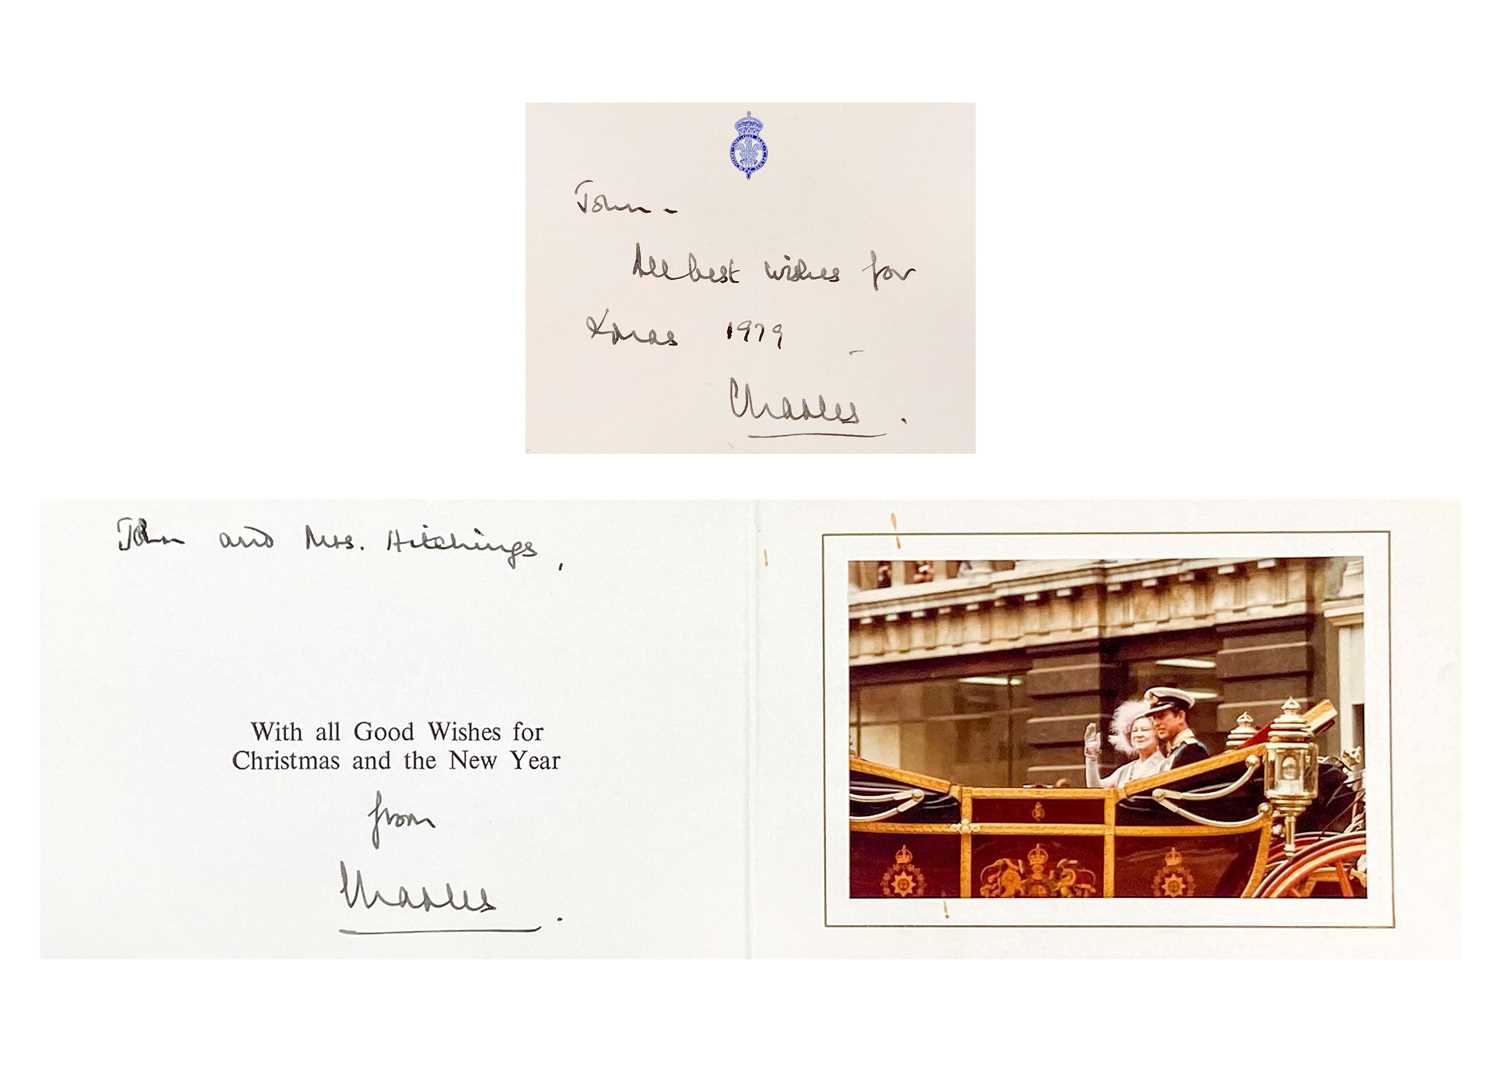 John -
All best wishes for
Xmas 1979 -
Charles.
John and Mrs. Hitchings,
With all Good Wishes for
Christmas and the New Year
from
Charles.